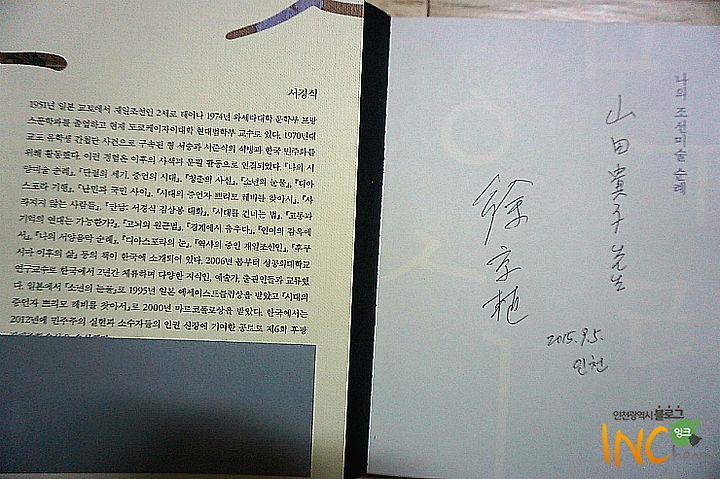 서경식
1951년 일본 교토에서 재일조선인 2세로 태어나 1974년 와세다대학 문학부 프랑
스문학과를 졸업하고 현재 도쿄케이자이대학 현대법학부 교수로 있다. 1970년대
교도 유학생 간첩단 사건으로 구속된 형 서승과 서준식의 석방과 한국 민주화를
위해 활동했다. 이런 경험은 이후의 사색과 문필 활동으로 연결되었다. 『나의 서
양미술 순례』, 『단절의 세기, 증언의 시대』, 『청춘의 사신』, 『소년의 눈물』, 『디아
스포라 기행』, 『난민과 국민 사이』, 『시대의 증언자 쁘리모 레비를 찾아서』, 『사
라지지 않는 사람들』, 『만남: 서경식 김상봉 대화』, 『시대를 건너는 법』, 『고통과
기억의 연대는 가능한가?』, 『고뇌의 원근법』, 『경계에서 춤추다』, 『언어의 감옥에
서』, 『나의 서양음악 순례』, 『디아스포라의 눈』, 『역사의 증인 재일조선인』, 『후쿠
시마 이후의 삶』 등의 책이 한국에 소개되어 있다. 2006년 봄부터 성공회대학교
연구교수로 한국에서 2년간 체류하며 다양한 지식인, 예술가, 출판인들과 교류했
다. 일본에서 『소년의 눈물』로 1995년 일본 에세이스트클럽상을 받았고 『시대의
증언자 쁘리모 레비를 찾아서』로 2000년 마르코폴로상을 받았다. 한국에서는
2012년에 민주주의 실현과 소수자들의 인권 신장에 기여한 공로로 제6회 후광
나의 조선미술 순례
山田貴子 선생님
徐京植
2015.9.5.
인천
인천광역시블로그
INC
잉크